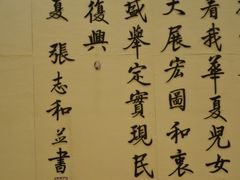 看我華夏兒女
大展宏圖和衷
盛舉定實現民
復興
夏 張志和並書